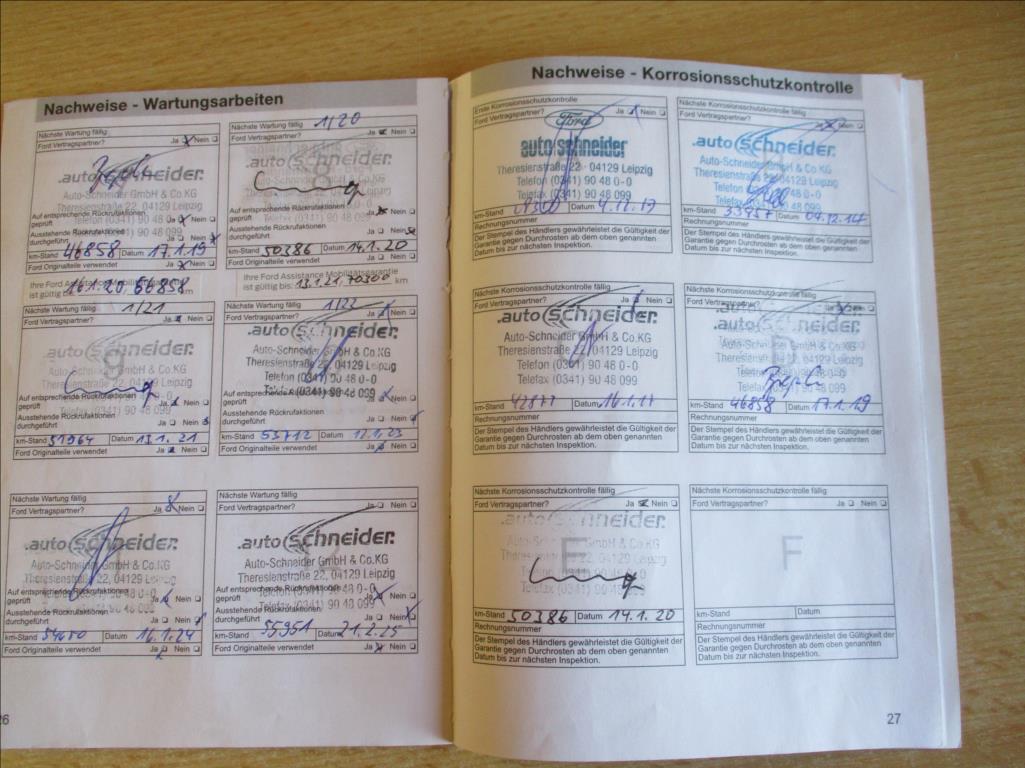 Nachweise - Wartungsarbeiten
Nächste Wartung fällig
Ford Vertragspartner? Ja Nein
.auto schneider.
Auto-Schneider GmbH & Co.KG
Theresienstraße 22, 04129 Leipzig
(0341) 90 48 0-0
Auf entsprechende Rückrufaktionen
geprüft Ja Nein
(0341) 90 48 099
Ausstehende Rückrufaktionen
durchgeführt Ja Nein
km-Stand 46858 Datum 17.1.19
Ford Originalteile verwendet Ja Nein
16.1.20 66858
Nächste Wartung fällig 1/20
Ford Vertragspartner? Ja Nein
.auto schneider.
Auto-Schneider GmbH & Co.KG
04129 Leipzig
Auf entsprechende Rückrufaktionen
geprüft
Ausstehende Rückrufaktionen
durchgeführt Ja Nein
km-Stand 50386 Datum 14.1.20
Ford Originalteile verwendet Ja Nein
Ihre Ford Assistance Mobilitätsgarantie
ist gültig bis: 13.1.21, 70300 km
Nächste Wartung fällig 1/21
Ford Vertragspartner? Ja Nein
.auto schneider.
Auto-Schneider GmbH & Co.KG
Theresienstraße 22, 04129 Leipzig
Auf entsprechende Rückrufaktionen
geprüft
(0341) 90 48 099
Ausstehende Rückrufaktionen
durchgeführt Ja Nein
km-Stand 51964 Datum 13.1.21
Ford Originalteile verwendet Ja Nein
Nächste Wartung fällig 1/22
Ford Vertragspartner? Ja Nein
.auto schneider.
Auto-Schneider GmbH & Co.KG
Theresienstraße 22, 04129 Leipzig
Telefon (0341) 90 48 0-0
Telefax (0341) 90 48 099
geprüft
Ausstehende Rückrufaktionen
durchgeführt Ja Nein
km-Stand 53712 Datum
Ford Originalteile verwendet Ja Nein
Nächste Wartung fällig
Ford Vertragspartner? Ja Nein
.auto schneider.
Auto-Schneider GmbH & Co.KG
Theresienstraße 22, 04129 Leipzig
Auf entsprechende Rückrufaktionen
geprüft Ja Nein
Ausstehende Rückrufaktionen
durchgeführt Ja Nein
km-Stand Datum 16.1.24
Ford Originalteile verwendet Ja Nein
Nächste Wartung fällig
Ford Vertragspartner? Ja Nein
.auto schneider.
Auto-Schneider GmbH & Co.KG
Theresienstraße 22, 04129 Leipzig
Auf entsprechende Rückrufaktionen
geprüft Ja Nein
Telefax (0341) 90 48 099
Ausstehende Rückrufaktionen
durchgeführt Ja Nein
km-Stand 55951 Datum 21.2.25
Ford Originalteile verwendet Ja Nein
26
Nachweise - Korrosionsschutzkontrolle
Erste Korrosionsschutzkontrolle
Ford Vertragspartner? Ja Nein
Ford
auto schneider
Theresienstraße 22 · 04129 Leipzig
Telefon (0341) 90 48 0-0
Telefax (0341) 90 48 099
km-Stand Datum
Rechnungsnummer
Der Stempel des Händlers gewährleistet die Gültigkeit der
Garantie gegen Durchrosten ab dem oben genannten
Datum bis zur nächsten Inspektion.
Nächste Korrosionsschutzkontrolle fällig
Ford Vertragspartner?
.auto schneider.
Auto-Schneider GmbH & Co.KG
Theresienstraße 22, 04129 Leipzig
Telefon (0341) 90 48 0-0
Telefax (0341) 90 48 099
km-Stand Datum
Rechnungsnummer
Der Stempel des Händlers gewährleistet die Gültigkeit der
Garantie gegen Durchrosten ab dem oben genannten
Datum bis zur nächsten Inspektion.
Nächste Korrosionsschutzkontrolle fällig
Ford Vertragspartner? Ja Nein
.auto schneider.
Auto-Schneider GmbH & Co.KG
Theresienstraße 22, 04129 Leipzig
Telefon (0341) 90 48 0-0
Telefax (0341) 90 48 099
km-Stand Datum
Rechnungsnummer
Der Stempel des Händlers gewährleistet die Gültigkeit der
Garantie gegen Durchrosten ab dem oben genannten
Datum bis zur nächsten Inspektion.
Nächste Korrosionsschutzkontrolle fällig
Ford Vertragspartner?
.auto schneider.
Auto-Schneider GmbH & Co.KG
Theresienstraße 22, 04129 Leipzig
km-Stand 46858 Datum 17.1.19
Rechnungsnummer
Der Stempel des Händlers gewährleistet die Gültigkeit der
Garantie gegen Durchrosten ab dem oben genannten
Datum bis zur nächsten Inspektion.
Nächste Korrosionsschutzkontrolle fällig
Ford Vertragspartner? Ja Nein
.auto schneider.
Auto-Schneider GmbH & Co.KG
04129 Leipzig
E
km-Stand 50386 Datum 14.1.20
Rechnungsnummer
Der Stempel des Händlers gewährleistet die Gültigkeit der
Garantie gegen Durchrosten ab dem oben genannten
Datum bis zur nächsten Inspektion.
Nächste Korrosionsschutzkontrolle fällig
Ford Vertragspartner? Ja Nein
F
km-Stand Datum
Rechnungsnummer
Der Stempel des Händlers gewährleistet die Gültigkeit der
Garantie gegen Durchrosten ab dem oben genannten
Datum bis zur nächsten Inspektion.
27